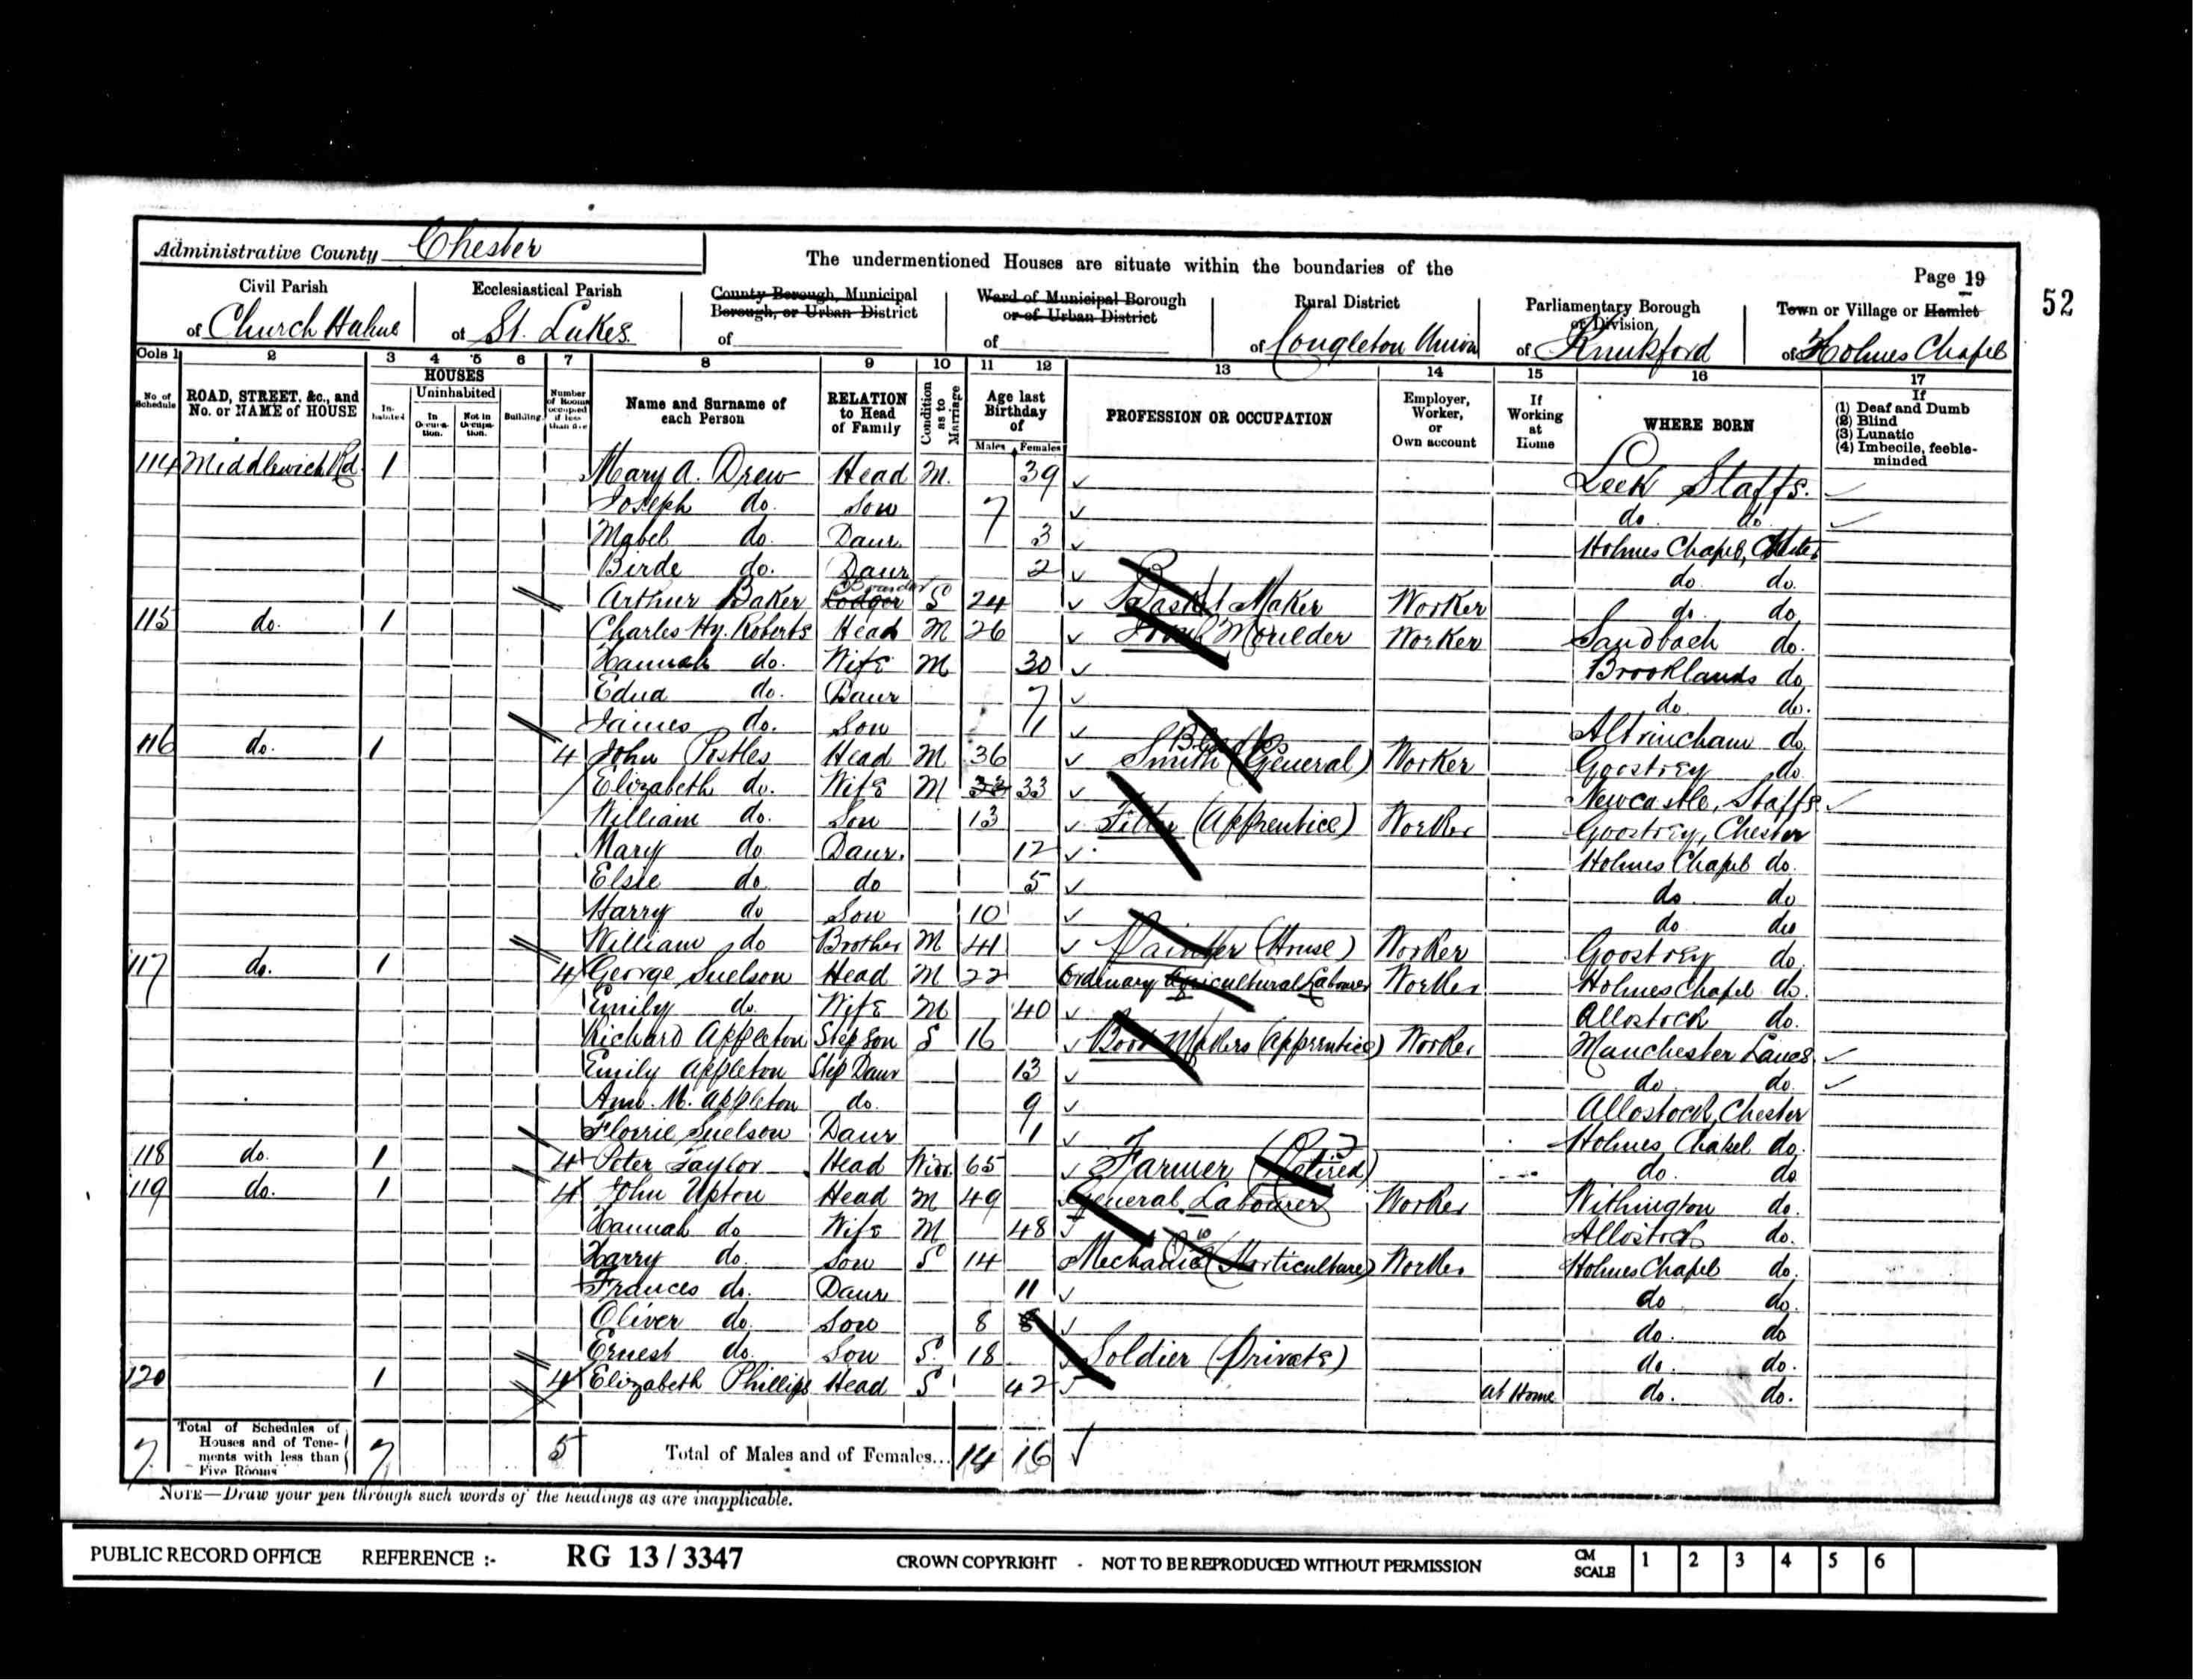 Administrative County Chester
The undermentioned Houses are situate within the boundaries of the
Page 19
52
Civil Parish
of Church Hulme
Ecclesiastical Parish
of St. Lukes
County Borough, Municipal
Borough, or Urban District
of
Ward of Municipal Borough
or of Urban District
of
Rural District
of Congleton Union
Parliamentary Borough
or Division
of Knutsford
Town or Village or Hamlet
of Holmes Chapel
Cols 1 2 3 4 5 6 7 8 9 10 11 12 13 14 15 16 17
No of Schedule
ROAD, STREET, &c., and No. or NAME of HOUSE
HOUSES
Inhabited
Uninhabited
In Occupation.
Not in Occupation.
Building
Number of Rooms occupied if less than five
Name and Surname of each Person
RELATION to Head of Family
Condition as to Marriage
Age last Birthday of
Males Females
PROFESSION OR OCCUPATION
Employer, Worker, or Own account
If Working at Home
WHERE BORN
If
(1) Deaf and Dumb
(2) Blind
(3) Lunatic
(4) Imbecile, feeble-minded
114 Middlewich Rd. 1 Mary A. Drew Head M. 39 Leek Staffs.
Joseph do. Son 7 do. do
Mabel do. Daur. 3 Holmes Chapel, Chester
Birde do. Daur 2 do. do.
Arthur Baker Lodger Boarder S 24 Basket Maker Worker do. do
115 do. 1 Charles Hy. Roberts Head M 26 Moulder Worker Sandbach do.
Hannah do. Wife M 30 Brooklands do
Edna do. Daur 7 do do.
James do. Son 1 Altrincham do.
116 do. 1 4 John Postles Head M 36 Blacks Smith (General) Worker Goostrey do
Elizabeth do. Wife M 33 33 Newcastle, Staffs
William do. Son 13 Fitter (Apprentice) Worker Goostrey, Chester
Mary do Daur. 12 Holmes Chapel do.
Elsie do do 5 do. do
Harry do Son 10 do do
William do Brother M 41 Painter (House) Worker Goostrey do.
117 do. 1 4 George Snelson Head M 22 Ordinary Agricultural Labourer Worker Holmes Chapel do.
Emily do. Wife M 40 Allostock do.
Richard Appleton Step Son S 16 Boot Makers (Apprentice) Worker Manchester Lancs
Emily Appleton Step Daur 13 do do.
Ann. M. Appleton do. 9 Allostock, Chester
Florrie Snelson Daur 1 Holmes Chapel do.
118 do. 1 4 Peter Taylor Head Widr. 65 Farmer (Retired) do. do
119 do. 1 4 John Upton Head M 49 General Labourer Worker Withington do.
Hannah do Wife M 48 Allostock do.
Harry do. Son S 14 Mechanic (Horticulture) Worker Holmes Chapel do.
Frances do. Daur 11 do do.
Oliver do. Son 8 8 do. do
Ernest do. Son S 18 Soldier (Private) do. do.
120 1 4 Elizabeth Phillips Head S 42 at Home do. do.
7 Total of Schedules of Houses and of Tenements with less than Five Rooms 7 5 Total of Males and of Females... 14 16
NOTE—Draw your pen through such words of the headings as are inapplicable.
PUBLIC RECORD OFFICE REFERENCE :- RG 13 / 3347 CROWN COPYRIGHT - NOT TO BE REPRODUCED WITHOUT PERMISSION CM SCALE 1 2 3 4 5 6